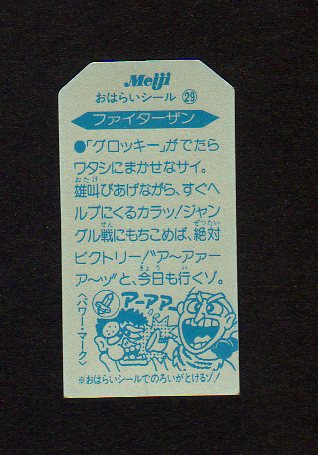 Meiji
おはらいシール ㉙
ファイターザン
●「グロッキー」がでたら
ワタシにまかせなサイ。
雄叫びあげながら、すぐヘ
ルプにくるカラッ!ジャン
グル戦にもちこめば、絶対
ビクトリー!"アーアァー
アーッ"と、今日も行くゾ。
〈パワー・マーク〉
アーアアー
※おはらいシールでのろいがとけるゾ!